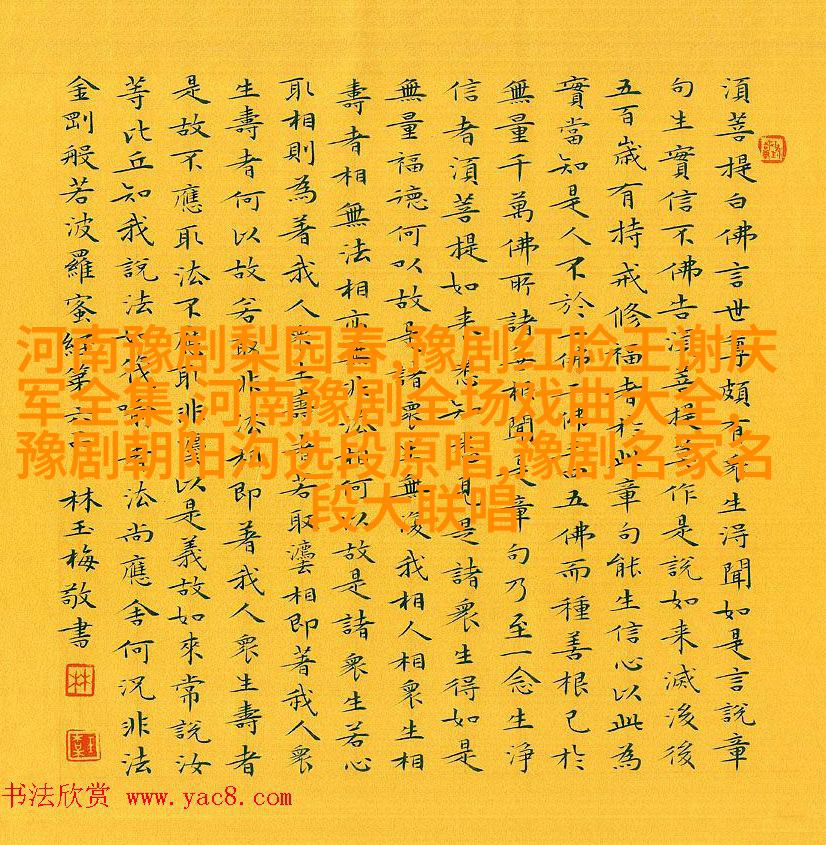 須菩提白佛言世尊頗有衆生得聞如是言說章
句生實信不佛告須菩提作是說如来滅後後
五百歲有持戒修福者於此章句能生信心以此為
實當知是人不於一佛二佛五佛而種善根已於
無量千萬佛所諸善根聞是章句乃至一念生淨
信者須菩提如来悉知悉見是諸衆生得如是
無量福德何以故是諸衆生無復我相人相衆生相
壽者相無法相亦無非法相何以故是諸衆生若心
取相則為著我人衆生壽者若取法相即著我人衆
生壽者何以故若取非法相即著我人衆生壽者
是故不應取法不應取非法以是義故如來常說汝
等比丘知我說法如筏喻者法尚應舍何況非法
金剛般若波羅蜜經第六 林玉梅敬書
林
河南豫剧梨园春,豫剧红脸王谢庆
军全集,河南豫剧全场戏曲大全,
豫剧朝阳沟选段原唱,豫剧名家名
段大联唱
书法欣赏 www.yac8.com